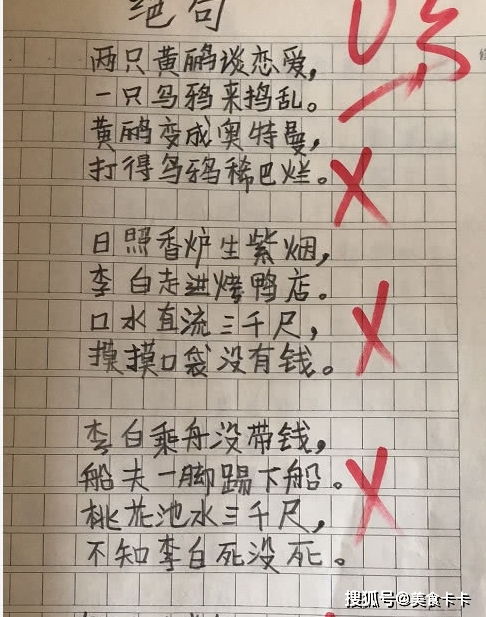 绝句
0分
两只黄鹂谈恋爱，
一只乌鸦来捣乱。
黄鹂变成奥特曼，
打得乌鸦稀巴烂。
日照香炉生紫烟，
李白走进烤鸭店。
口水直流三千尺，
摸摸口袋没有钱。
李白乘舟没带钱，
船夫一脚踢下船。
桃花池水三千尺，
不知李白死没死。
搜狐号@美食卡卡